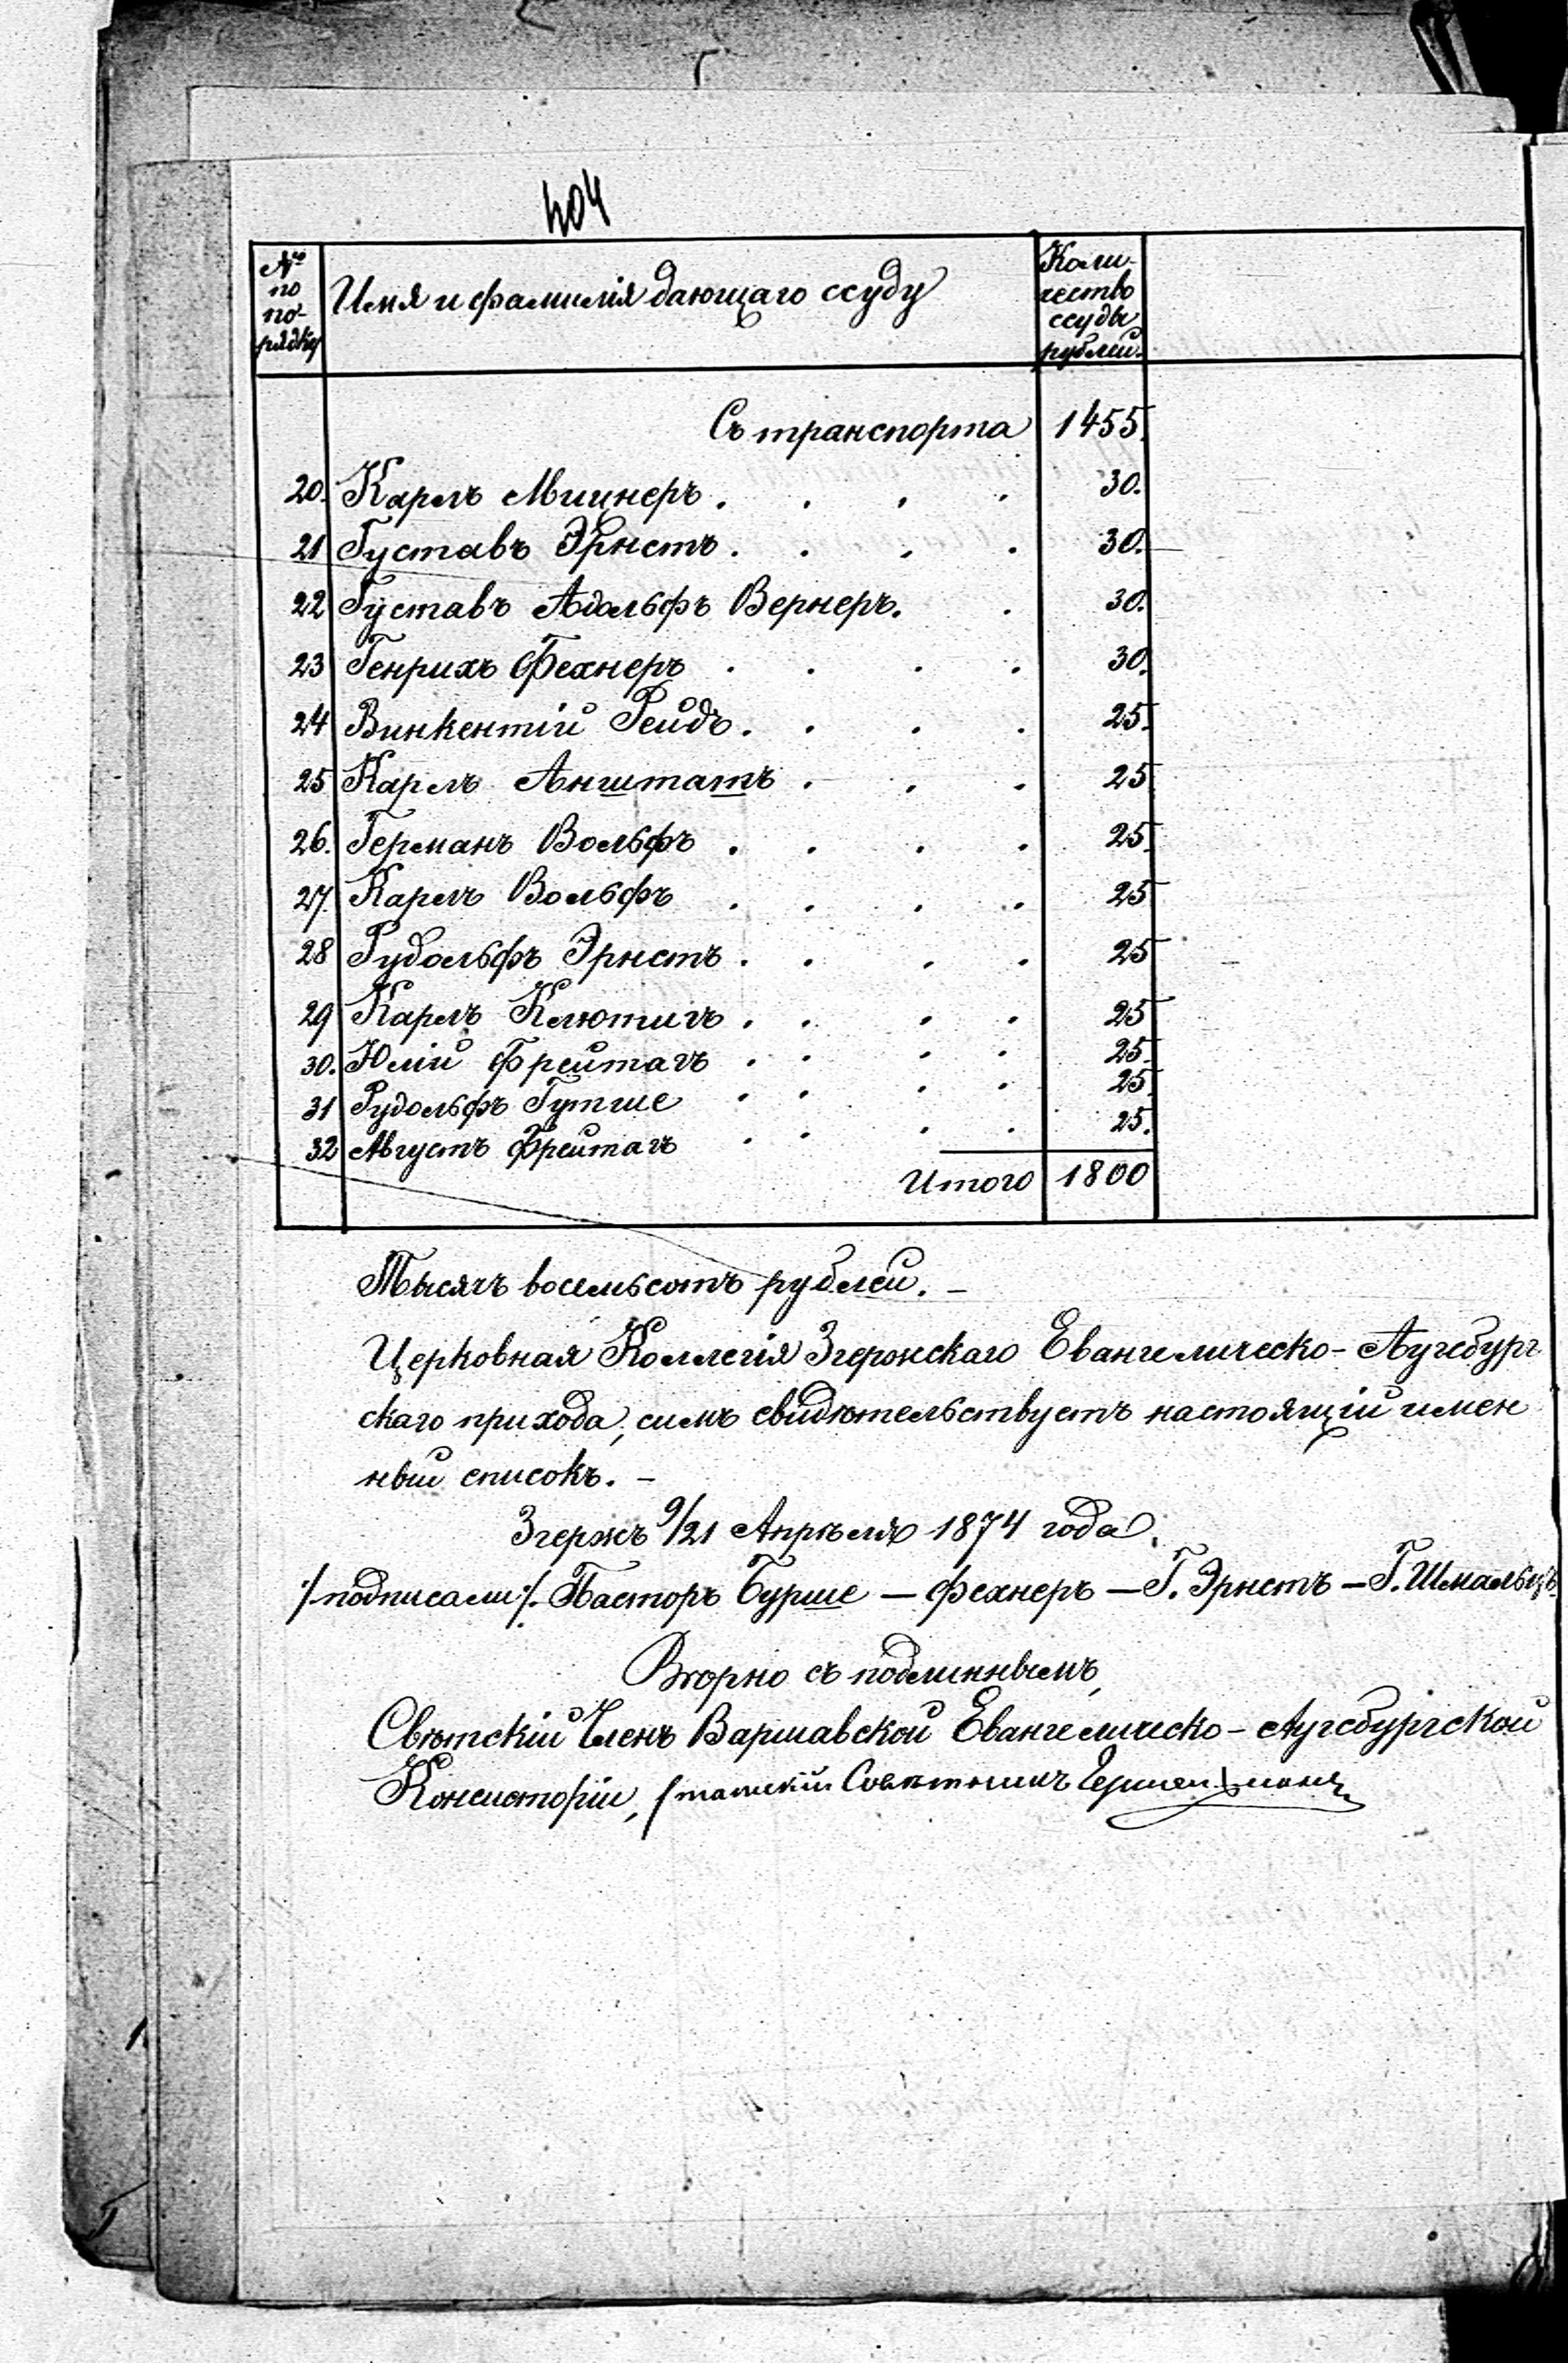 404
№ по по- рядку
Имя и фамилія дающаго ссуду
Коли- чество ссуды рублей.
Съ транспорта 1455.
20. Карлъ Мицнеръ . . . . 30.
21 Густавъ Эрнстъ . . . . 30.
22 Густавъ Адольфъ Вернеръ. . 30.
23 Генрихъ Фехнеръ . . . . 30.
24 Винкентій Рейдъ . . . . 25.
25 Карлъ Анштатъ . . . 25.
26. Германъ Вольфъ . . . . 25.
27. Карлъ Вольфъ . . . . 25
28 Рудольфъ Эрнстъ . . . . 25
29 Карлъ Клютигъ . . . . 25
30. Юлій Фрейтагъ . . . . 25.
31 Рудольфъ Гутше . . . . 25.
32 Августъ Фрейтагъ . . . . 25.
Итого 1800
Тысячъ восемьсотъ рублей. –
Церковная Коллегія Згержскаго Евангелическо-Аугсбург
скаго прихода, симъ свидѣтельствуетъ настоящій имен
ный списокъ. –
Згержъ 9/21 Апрѣля 1874 года.
/:подписали:/. Пасторъ Бурше – Фехнеръ – Г. Эрнстъ – Г. Шмальцъ.
Вѣрно съ подлиннымъ,
Свѣтскій Членъ Варшавской Евангелическо-Аугсбургской
Консисторіи, Статскій Совѣтникъ